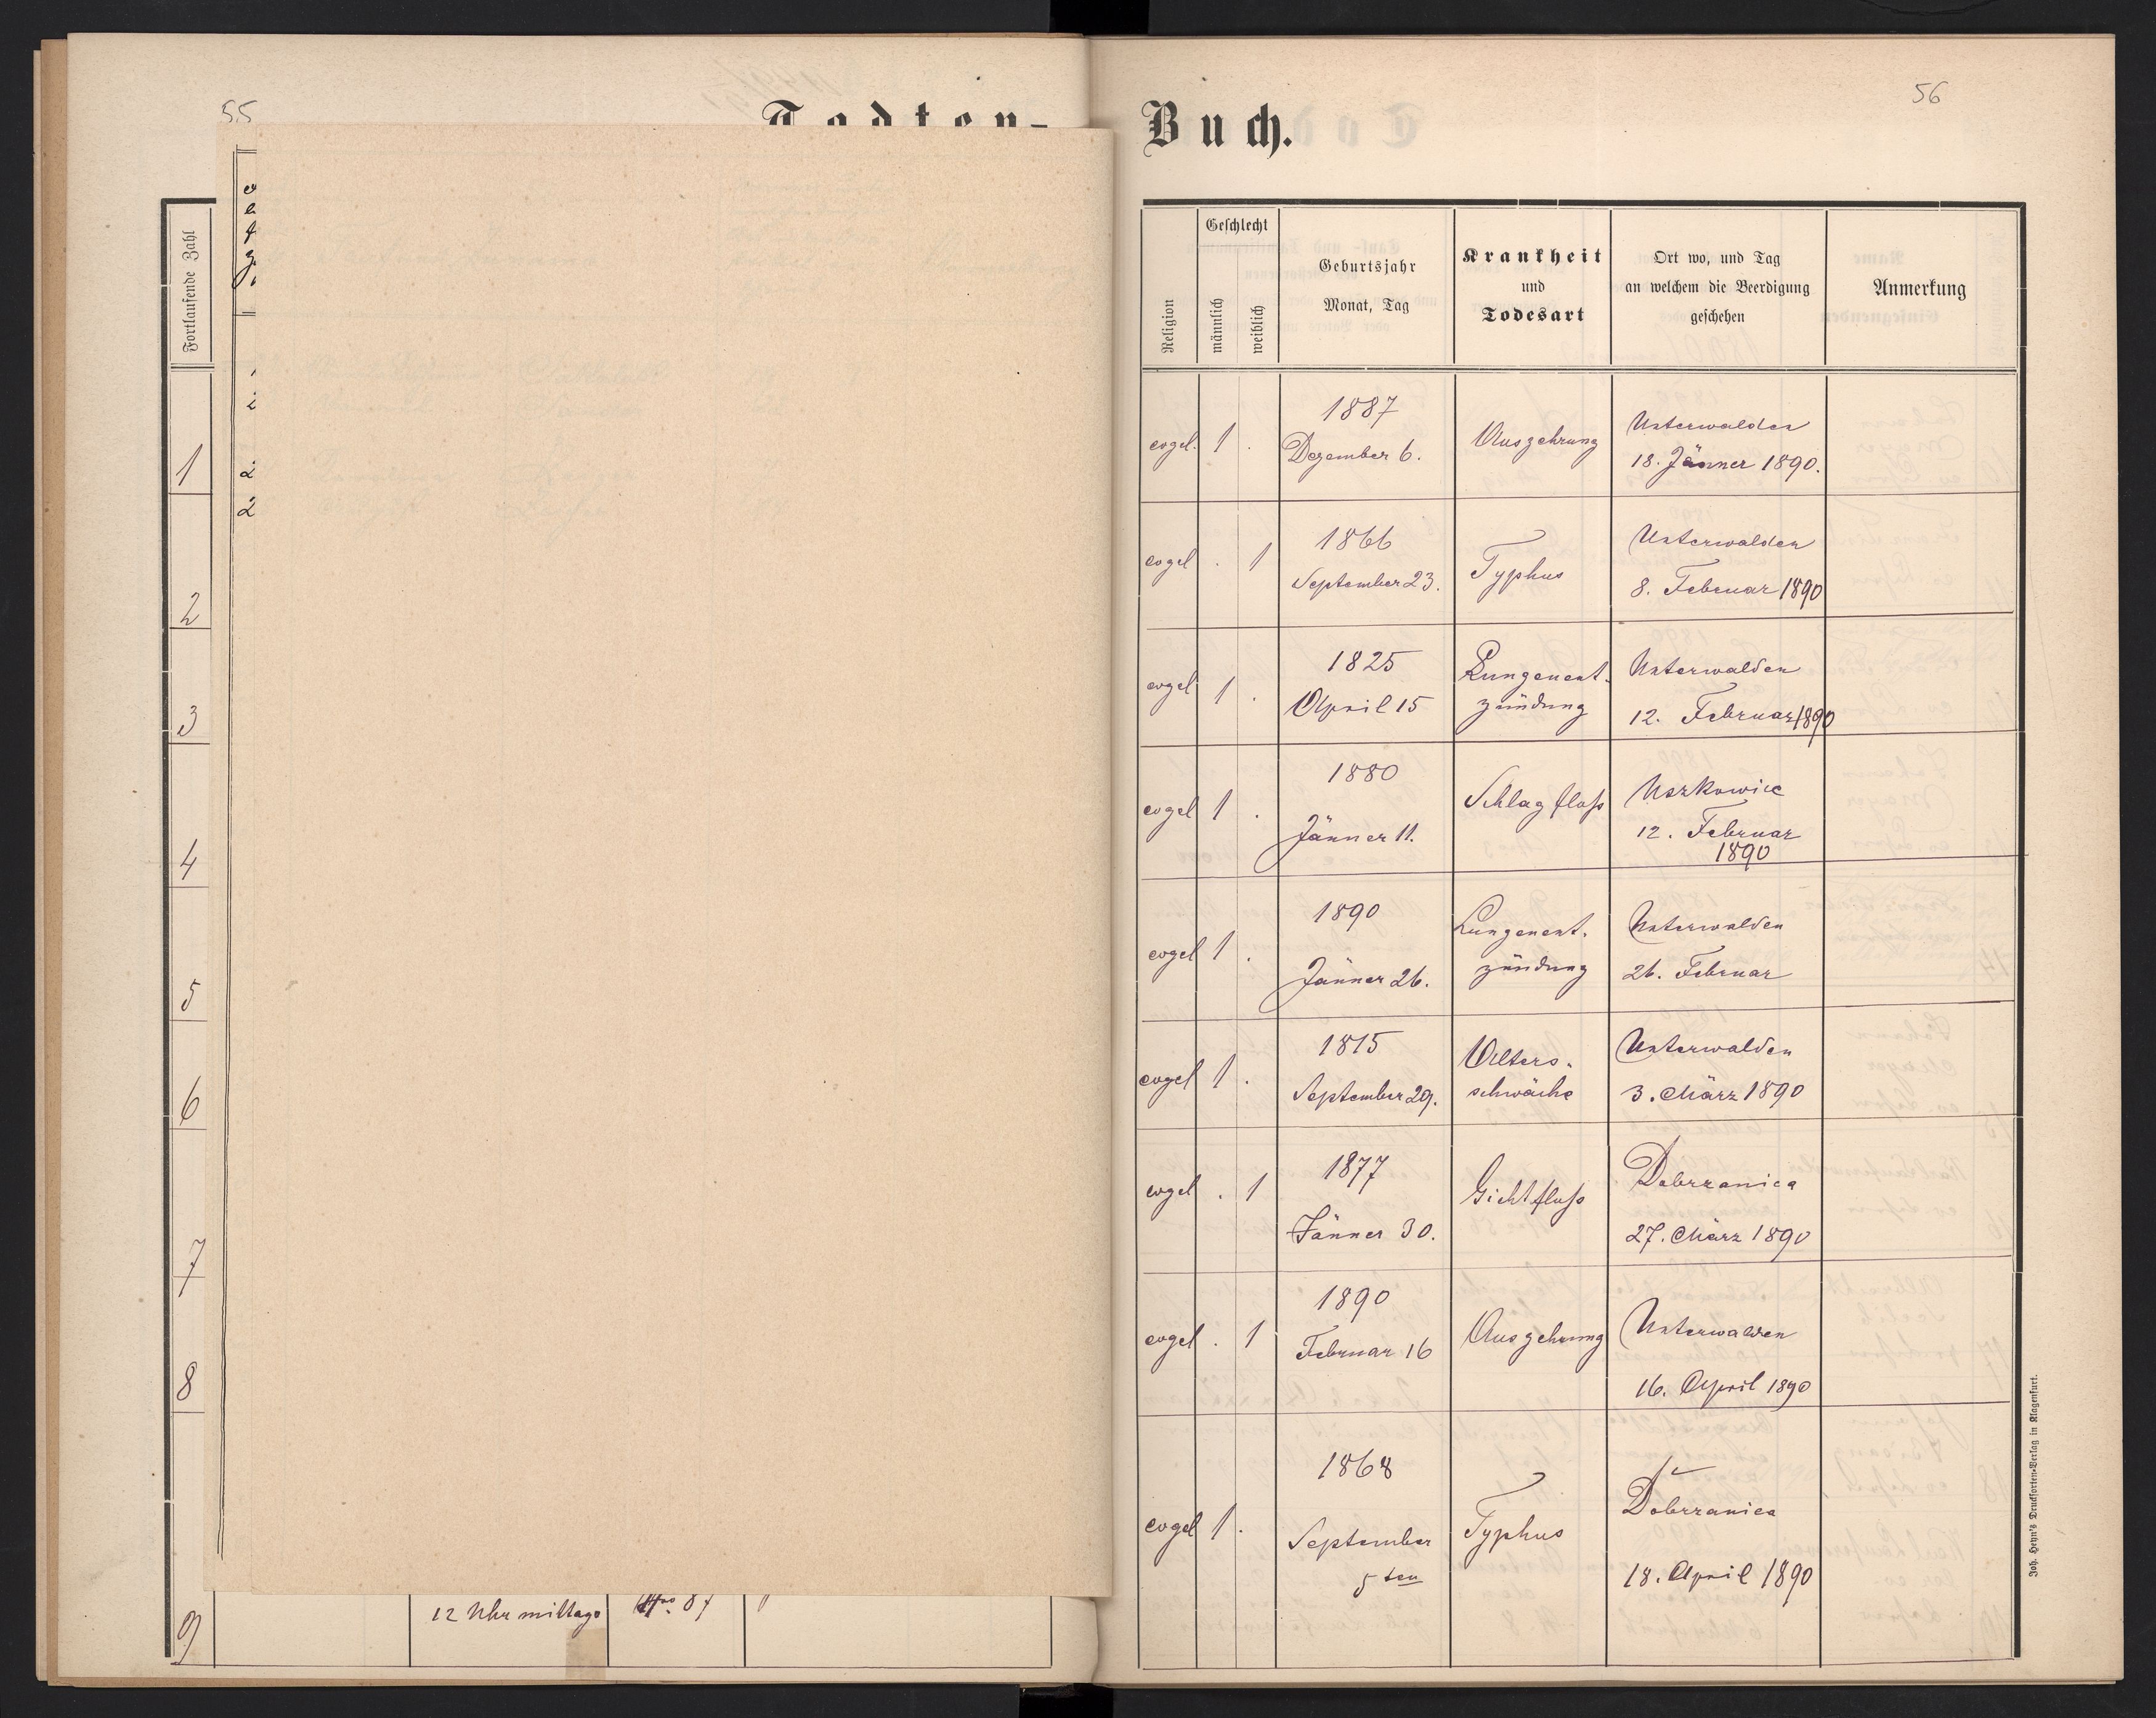 55
56
Todten-
Buch.
Fortlaufende Zahl
1
2
3
4
5
6
7
8
9
12 Uhr mittags
Religion
Geschlecht
männlich
weiblich
Geburtsjahr
Monat, Tag
Krankheit
und
Todesart
Ort wo, und Tag
an welchem die Beerdigung
geschehen
Anmerkung
evgel. 1 .
1887
Dezember 6.
Auszehrung
Unterwalden
18. Jänner 1890.
evgel . 1
1866
September 23.
Typhus
Unterwalden
8. Februar 1890
evgel 1 .
1825
April 15
Lungenent-
zündung
Unterwalden
12. Februar 1890
evgel 1 .
1880
Jänner 11.
Schlagfluß
Uszkowice
12. Februar
1890
evgel 1 .
1890
Jänner 26.
Lungenent-
zündung
Unterwalden
26. Februar
evgel 1 .
1815
September 29.
Alters-
schwäche
Unterwalden
3. März 1890
evgel . 1
1877
Jänner 30.
Gichtfluß
Dobrzanica
27. März 1890
evgel . 1
1890
Februar 16
Auszehrung
Unterwalden
16. April 1890
evgel 1 .
1868
September
5ten
Typhus
Dobrzanica
18. April 1890
Joh. Heyn's Drucksorten-Verlag in Klagenfurt.